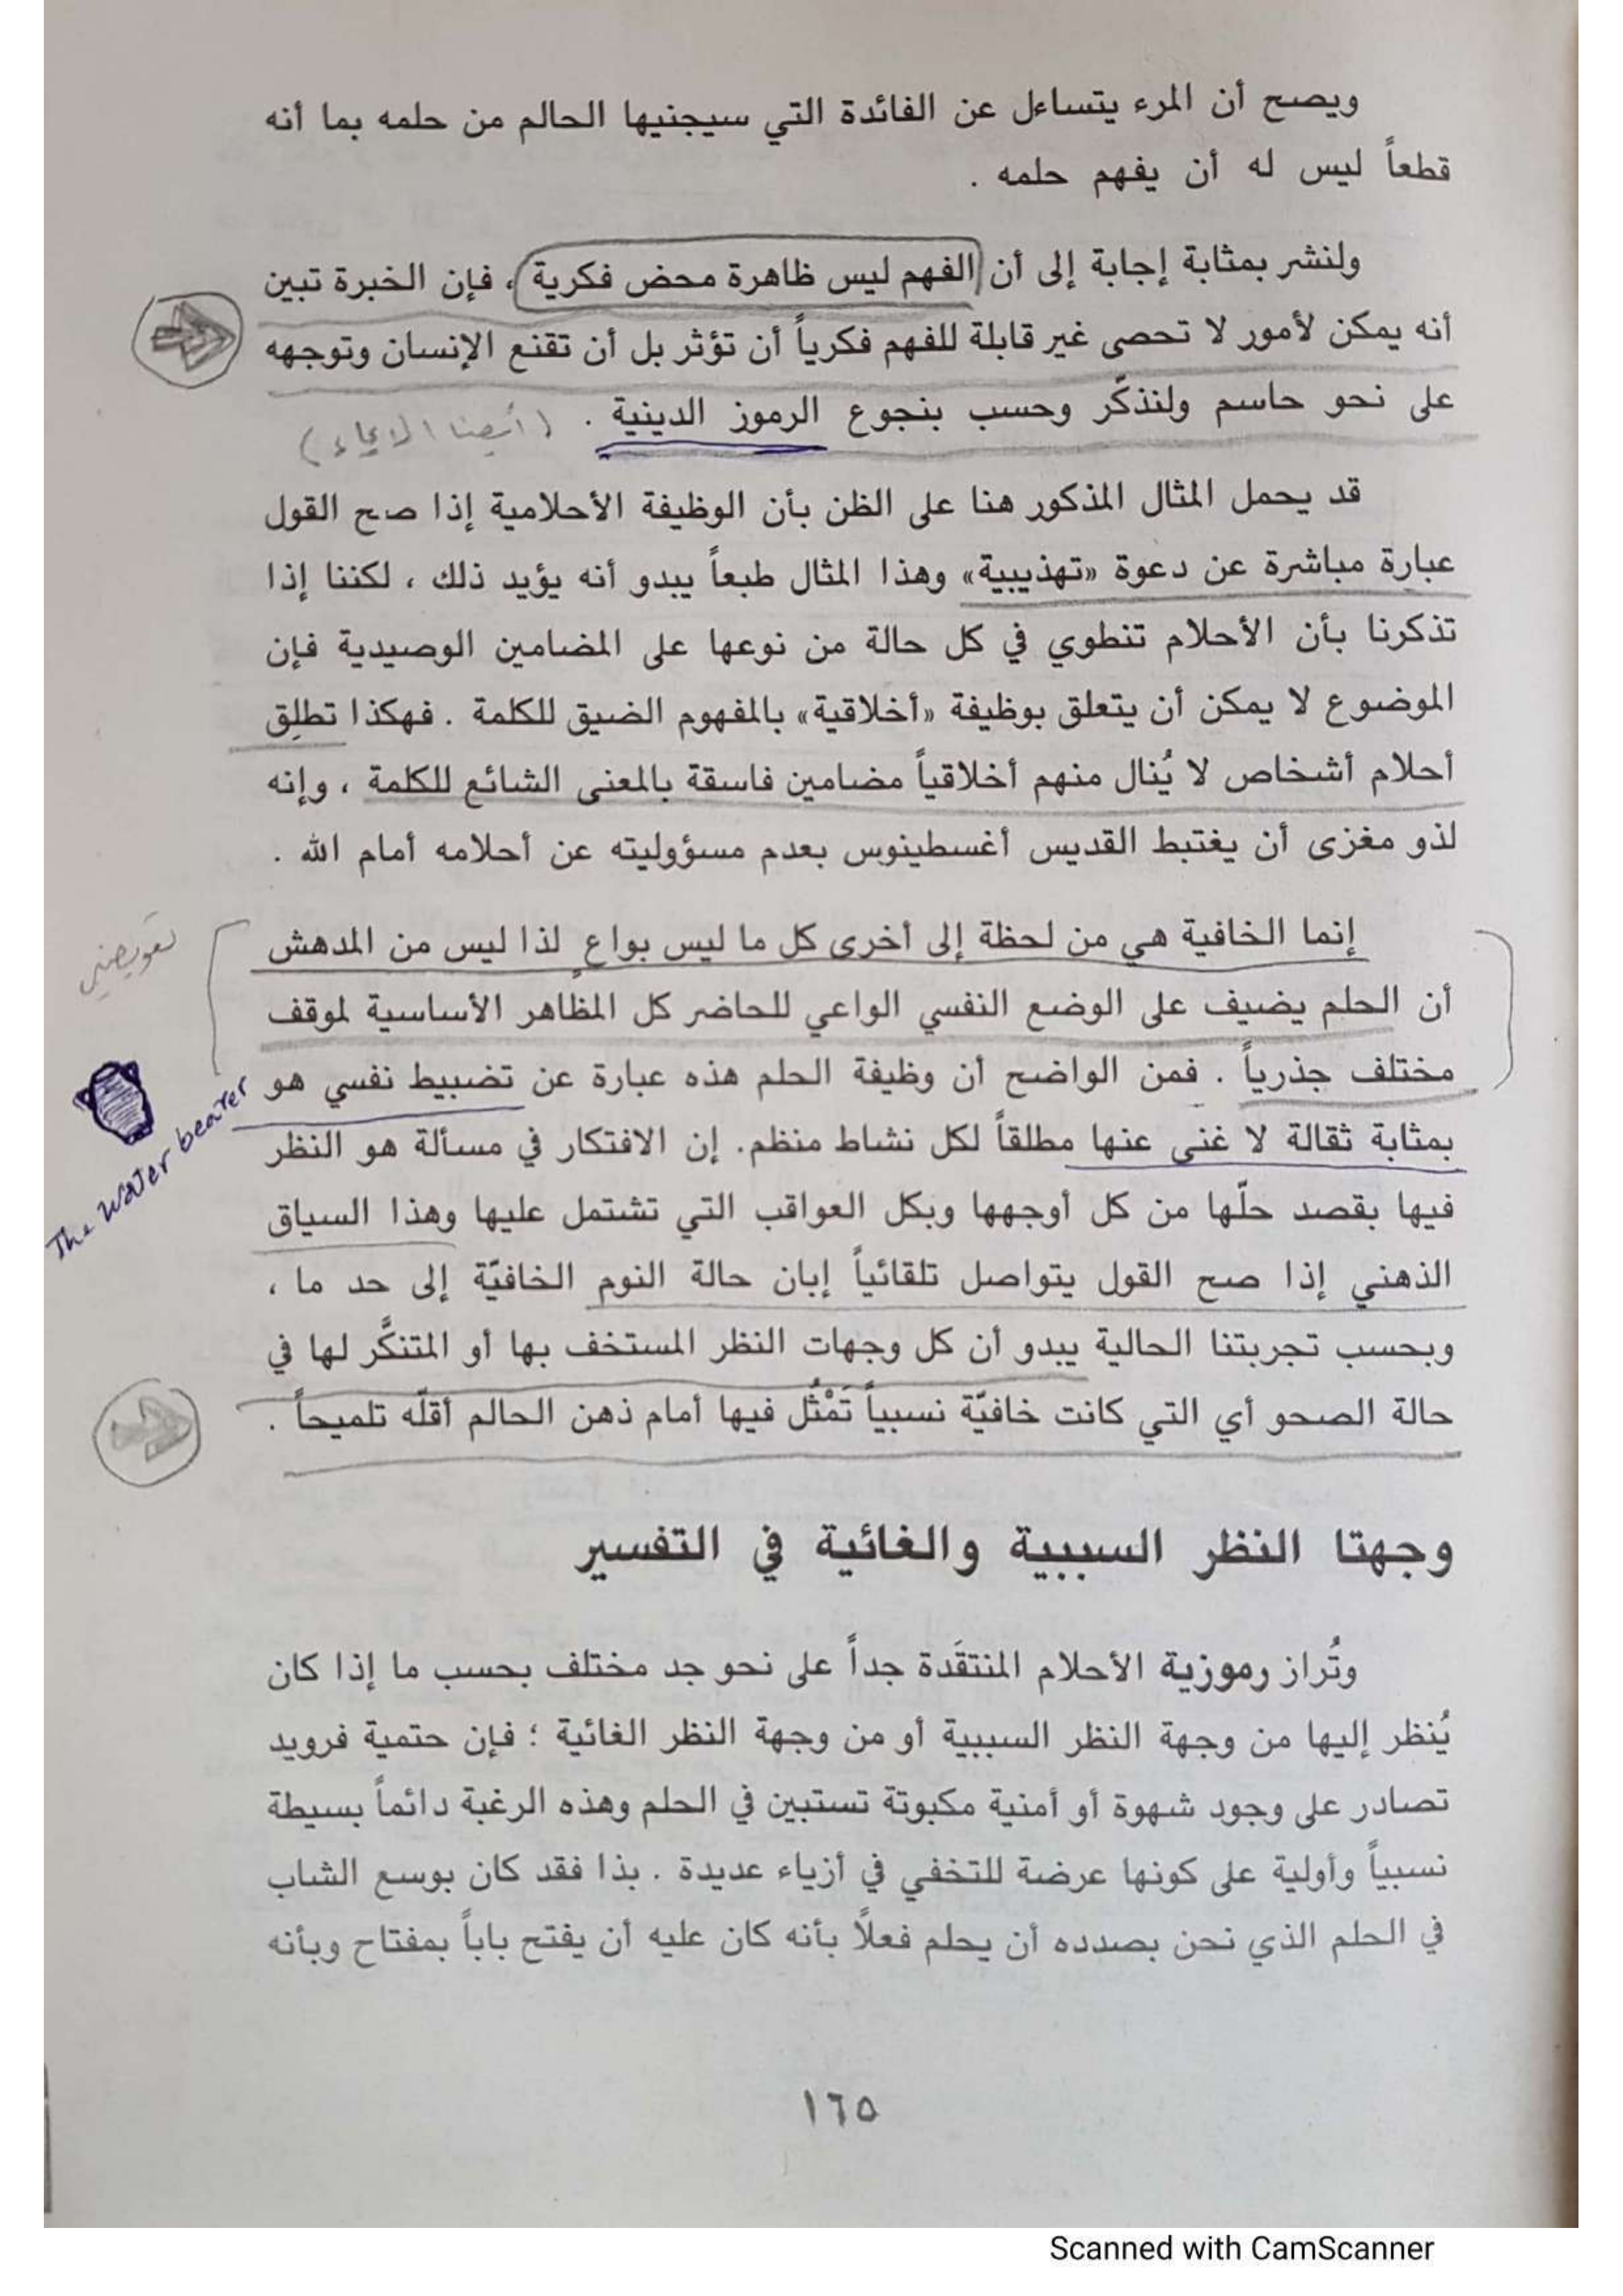 ويصح أن المرء يتساءل عن الفائدة التي سيجنيها الحالم من حلمه بما أنه
قطعاً ليس له أن يفهم حلمه .
ولنشر بمثابة إجابة إلى أن الفهم ليس ظاهرة محض فكرية ، فإن الخبرة تبين
أنه يمكن لأمور لا تحصى غير قابلة للفهم فكرياً أن تؤثر بل أن تقنع الإنسان وتوجهه
على نحو حاسم ولنذكّر وحسب بنجوع الرموز الدينية .
(أيضا الايحاء)
قد يحمل المثال المذكور هنا على الظن بأن الوظيفة الأحلامية إذا صح القول
عبارة مباشرة عن دعوة «تهذيبية» وهذا المثال طبعاً يبدو أنه يؤيد ذلك ، لكننا إذا
تذكرنا بأن الأحلام تنطوي في كل حالة من نوعها على المضامين الوصيدية فإن
الموضوع لا يمكن أن يتعلق بوظيفة «أخلاقية» بالمفهوم الضيق للكلمة . فهكذا تطلِق
أحلام أشخاص لا يُنال منهم أخلاقياً مضامين فاسقة بالمعنى الشائع للكلمة ، وإنه
لذو مغزى أن يغتبط القديس أغسطينوس بعدم مسؤوليته عن أحلامه أمام الله .
إنما الخافية هي من لحظة إلى أخرى كل ما ليس بواعٍ لذا ليس من المدهش
تعويضي
أن الحلم يضيف على الوضع النفسي الواعي للحاضر كل المظاهر الأساسية لموقف
مختلف جذرياً . فمن الواضح أن وظيفة الحلم هذه عبارة عن تضبيط نفسي هو
The water bearer
بمثابة ثقالة لا غنى عنها مطلقاً لكل نشاط منظم. إن الافتكار في مسألة هو النظر
فيها بقصد حلّها من كل أوجهها وبكل العواقب التي تشتمل عليها وهذا السياق
الذهني إذا صح القول يتواصل تلقائياً إبان حالة النوم الخافيّة إلى حد ما ،
وبحسب تجربتنا الحالية يبدو أن كل وجهات النظر المستخف بها أو المتنكَّر لها في
حالة الصحو أي التي كانت خافيّة نسبياً تَمْثُل فيها أمام ذهن الحالم أقلّه تلميحاً .
وجهتا النظر السببية والغائية في التفسير
وتُراز رموزية الأحلام المنتقَدة جداً على نحو جد مختلف بحسب ما إذا كان
يُنظر إليها من وجهة النظر السببية أو من وجهة النظر الغائية ؛ فإن حتمية فرويد
تصادر على وجود شهوة أو أمنية مكبوتة تستبين في الحلم وهذه الرغبة دائماً بسيطة
نسبياً وأولية على كونها عرضة للتخفي في أزياء عديدة . بذا فقد كان بوسع الشاب
في الحلم الذي نحن بصدده أن يحلم فعلاً بأنه كان عليه أن يفتح باباً بمفتاح وبأنه
١٦٥
Scanned with CamScanner